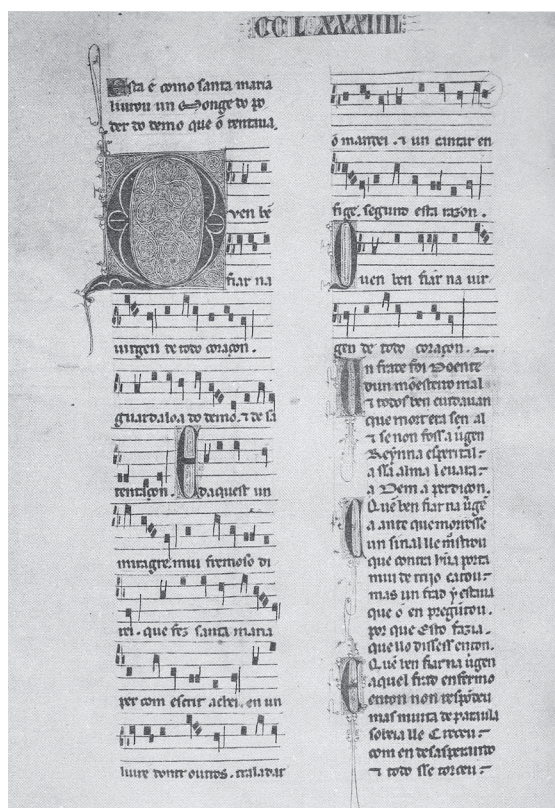 CCLXXXIIII.
Esta é como santa maria
liurou un Monge do po
der do demo que o tentaua.
Quen bē
fiar na
uirgen de todo coraçon.
guardaloa do demo. ⁊ de sa
tentaçon. E daquest un
miragre. mui fremoso di
rei. que fez santa maria
per com escrit achei. en un
liure dontr outros. traladar
o mandei. ⁊ un cantar en
fige. segund esta razon.
Quen ben fiar na uir
gen de todo coraçon.
Un frade foi Doente
dun mõesteiro mal
⁊ todos ben cuidauan
que mort era sen al
⁊ se non foss a ũgen
Reynna esperital
a ssa alma leuada
a Dem a perdiçon.
Quē ben fiar na ũgē
Ca ante que morresse
un sinal lle mostrou
que contra hũa porta
mui de rrijo catou
mas un frad y estaua
que o en pregūtou.
por que Esto fazia.
que llo dissess enton.
Quē ben fiar na ũgen
E aquel frade enfermo
enton non respōdeu
mas muita de paraula
sobeia lle Creceu
com en desasperando
⁊ todo sse torceu